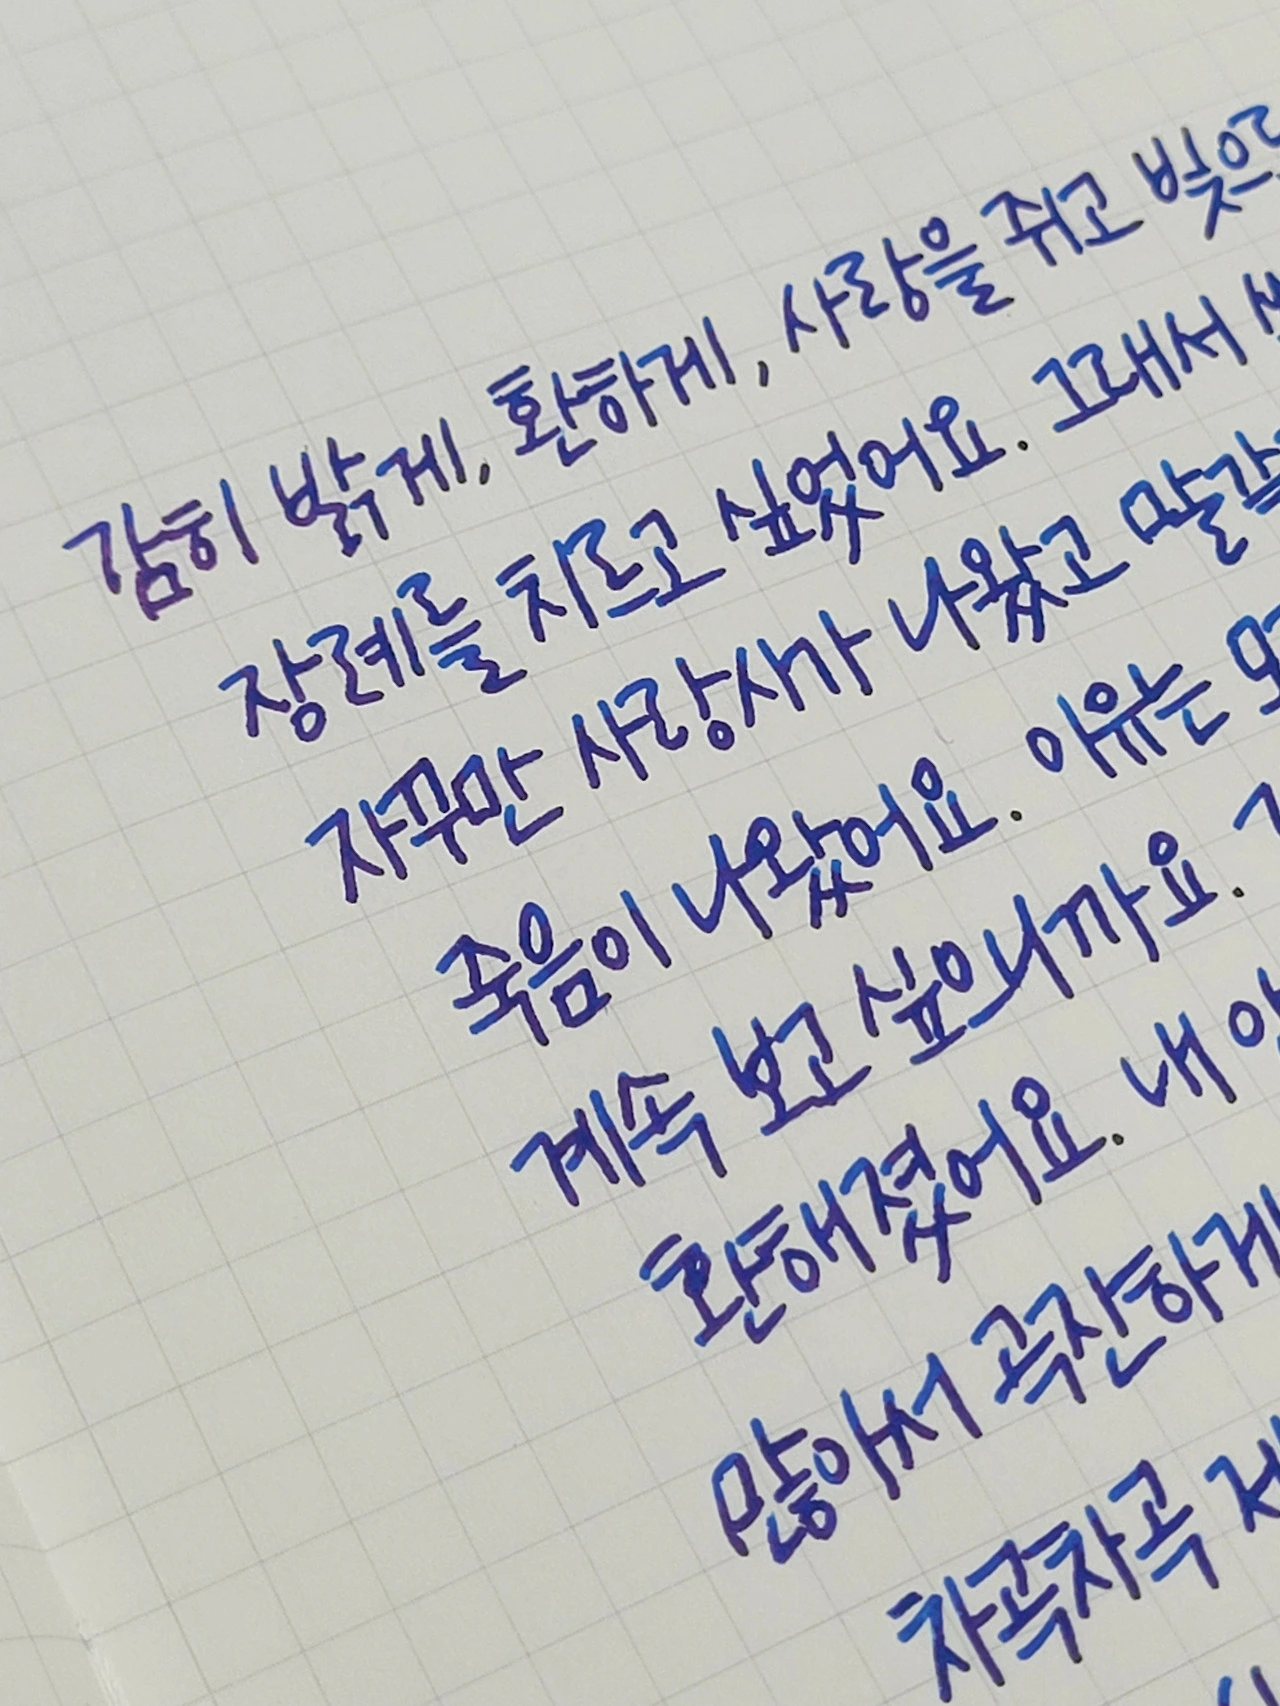 감히 밝게, 환하게, 사랑을 쥐고 빛으로
장례를 치르고 싶었어요. 그래서
자꾸만 사랑사가 나왔고 말갛
죽음이 나왔어요. 이유는
계속 보고 싶으니까요.
환해졌어요. 내
많아서 곡진하게
차곡차곡